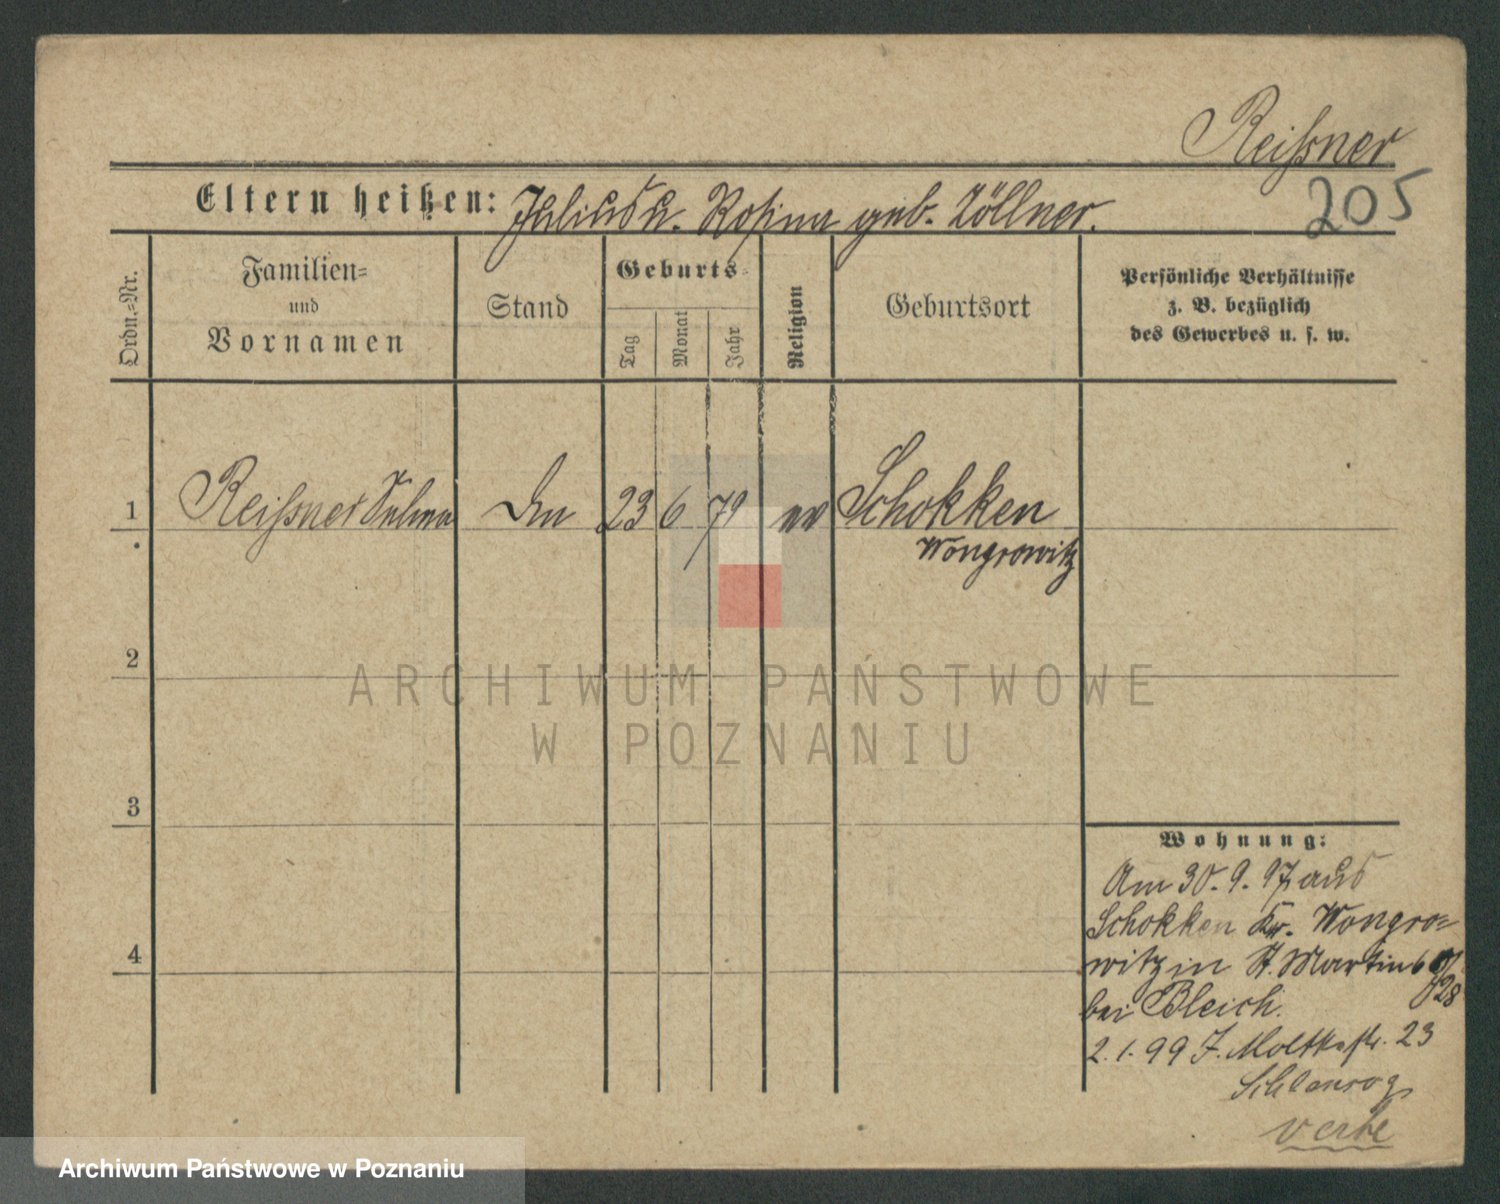 Reißner
205
Eltern heißen: Julius u. Rosina geb. Zöllner.
Ordn.-Nr.
Familien-
und
Vornamen
Stand
Geburts-
Tag
Monat
Jahr
Religion
Geburtsort
Persönliche Verhältnisse
z. B. bezüglich
des Gewerbes u. s. w.
1
Reißner Selma
23 6 79 ev Schokken
Wongrowitz
2
ARCHIWUM PAŃSTWOWE
W POZNANIU
3
Wohnung:
Am 30. 9. 97 aus
Schokken Kr. Wongro=
witz in St. Martin
28
bei Bleich.
2. 1. 99 J. Moltkestr. 23
4
Archiwum Państwowe w Poznaniu